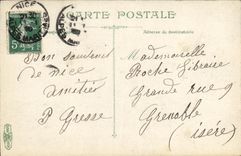 CARTE POSTALE
NICE
Adresse du destinataire
Bon souvenir
de nice
Amitiés
P Grosse
Mademoiselle
Roche libraire
Grande rue 9
Grenoble
(isére)